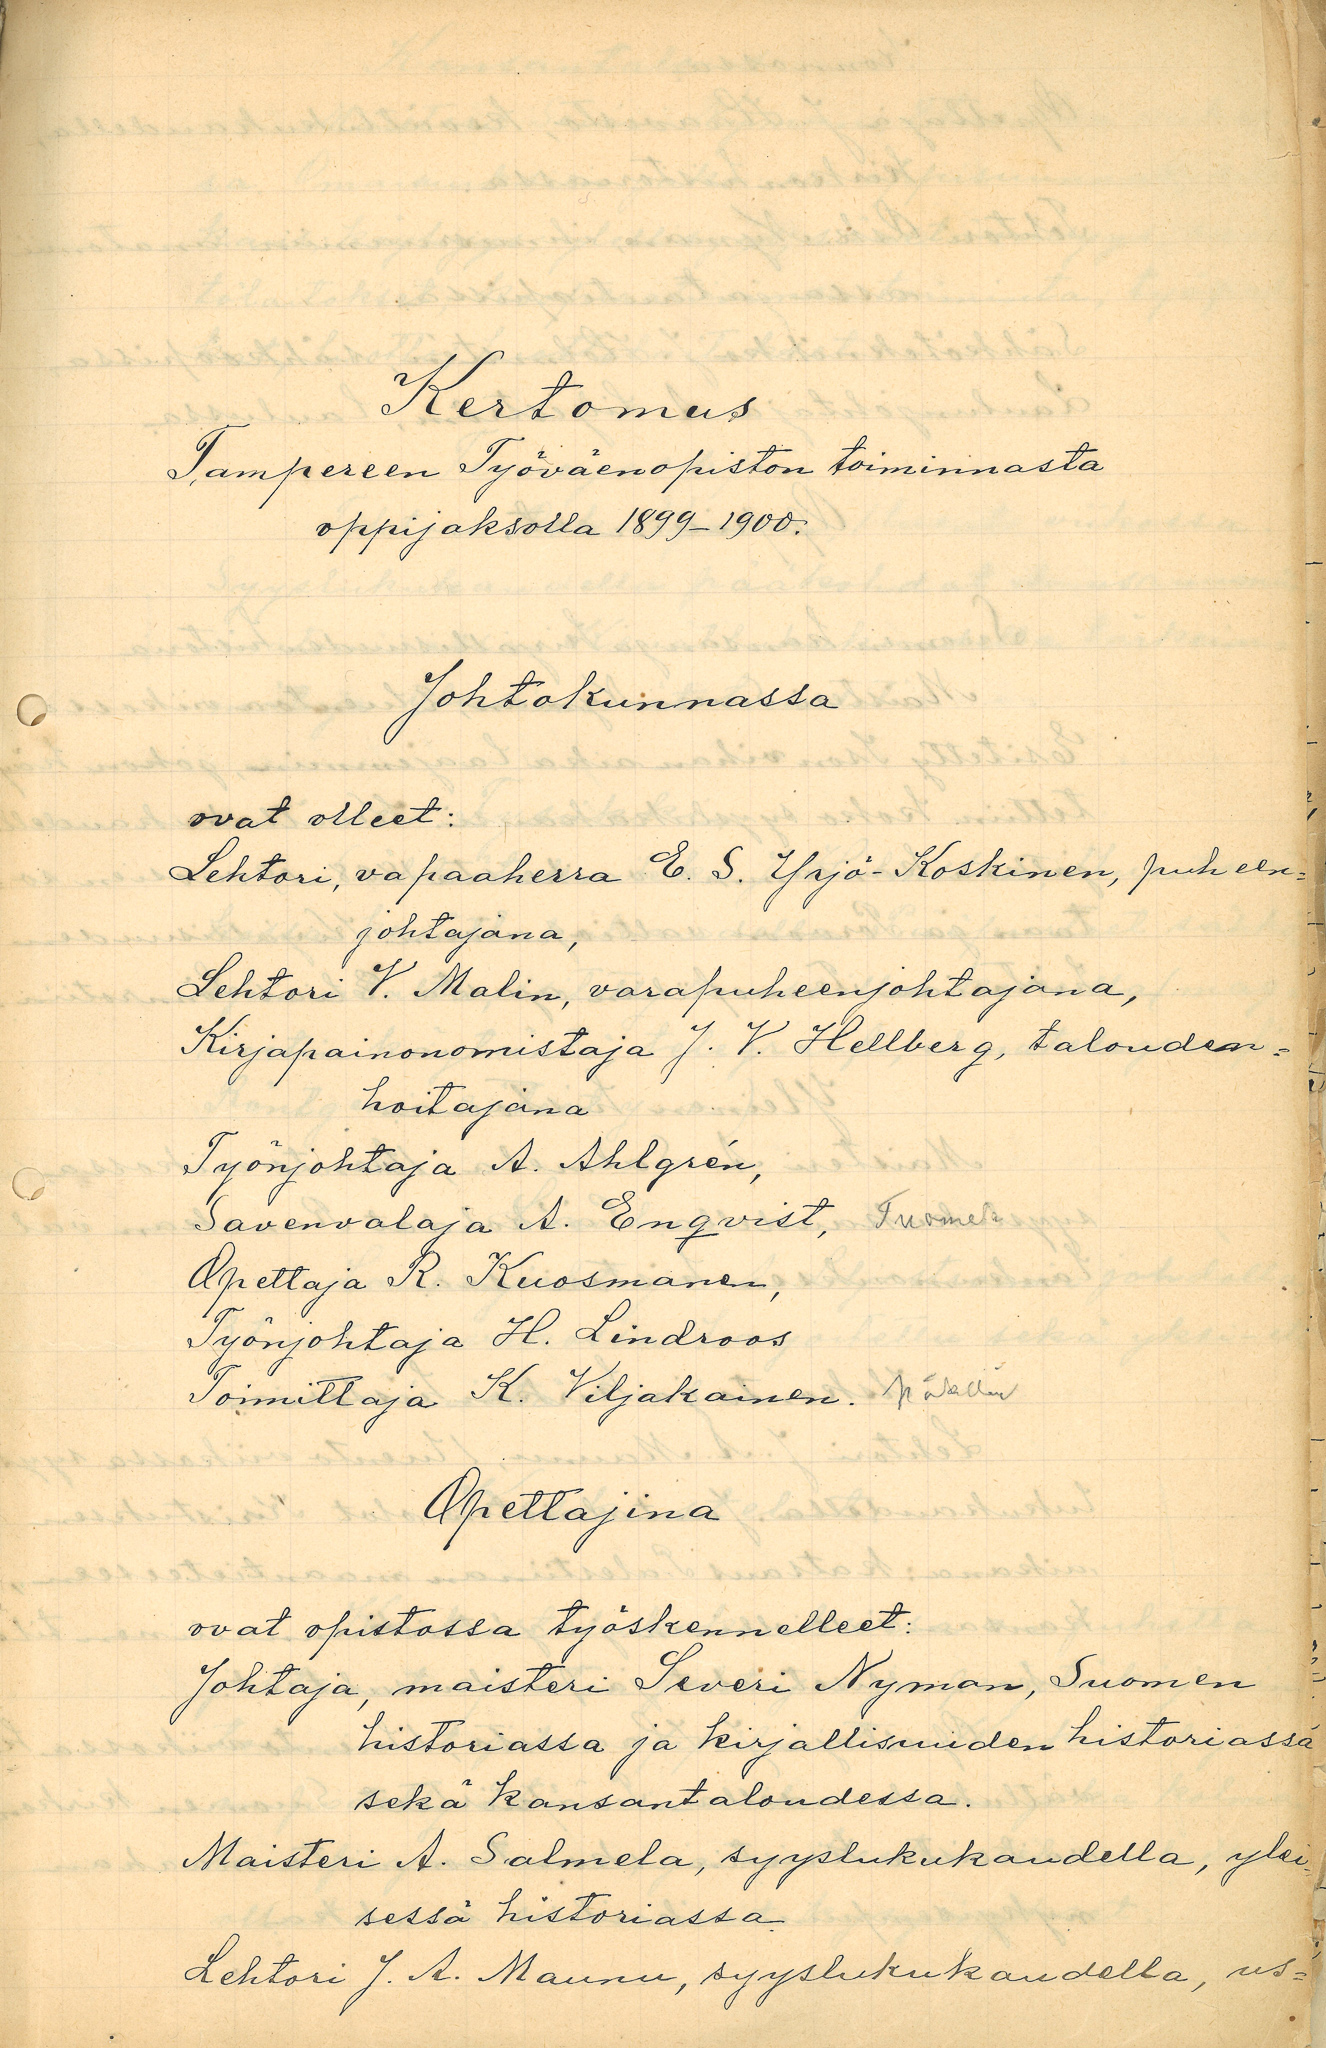 Kertomus
Tampereen Työväenopiston toiminnasta
oppijaksolla 1899-1900.
Johtokunnassa
ovat olleet:
Lehtori, vapaaherra E. S. Yrjö-Koskinen, puheen=
johtajana,
Lehtori V. Malin, varapuheenjohtajana,
Kirjapainonomistaja J. V. Hellberg, talouden=
hoitajana
Työnjohtaja A. Ahlgrén,
Savenvalaja A. Enqvist,
Opettaja R. Kuosmanen,
Työnjohtaja H. Lindroos
Toimittaja K. Viljakainen.
Opettajina
ovat opistossa työskennelleet:
Johtaja, maisteri Severi Nyman, Suomen
historiassa ja kirjallisuuden historiassa
sekä kansantaloudessa.
Maisteri A. Salmela, syyslukukaudella, ylei=
sessä historiassa.
Lehtori J. A. Maunu, syyslukukaudella, us=